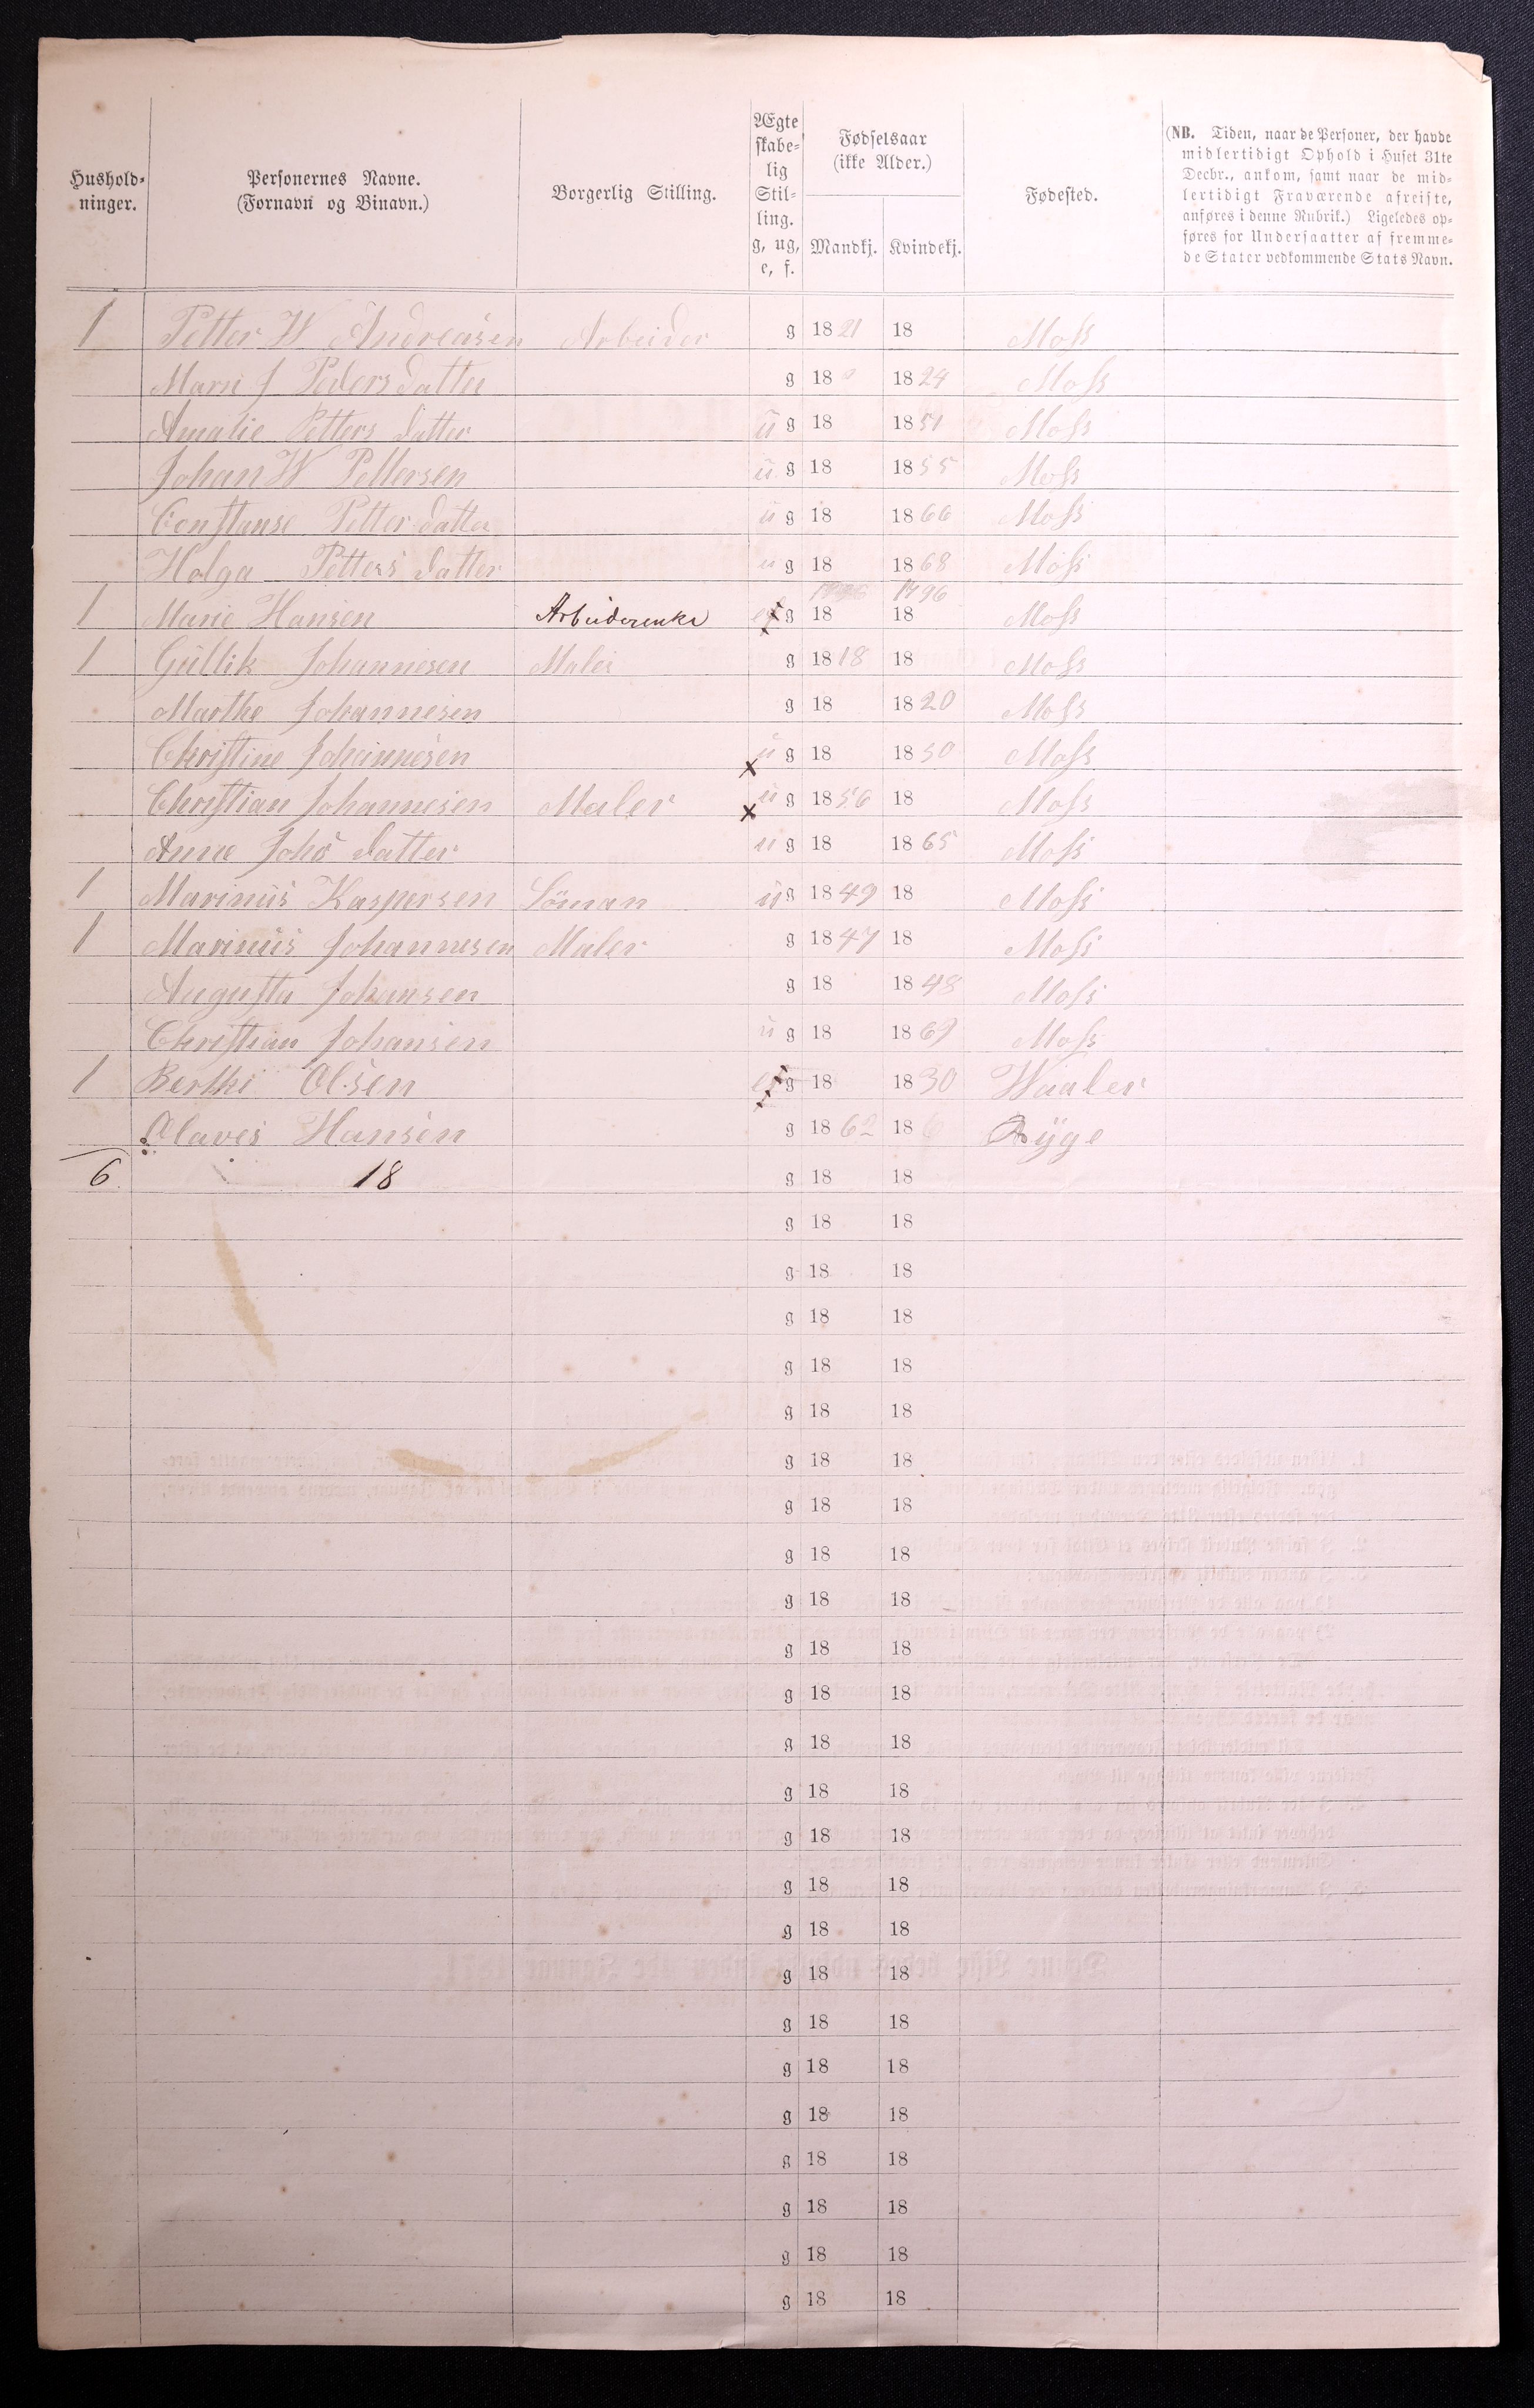 Hushold-
ninger.
Personernes Navne.
(Fornavn og Binavn.)
Borgerlig Stilling.
Ægte
skabe-
lig
Stil-
ling.
g, ug,
e, f.
Fødselsaar
(ikke Alder.)
Mandkj. Kvindekj.
Fødested.
(NB. Tiden, naar de Personer, der havde
midlertidigt Ophold i Huset 31te
Decbr., ankom, samt naar de mid-
lertidigt Fraværende afreiste,
anføres i denne Rubrik.) Ligeledes op-
føres for Undersaatter af fremme-
de Stater vedkommende Stats Navn.
1 Petter W Andreasen Arbeider g 1821 18 Moss
Marn J Peders datter g 18 1824 Moss
Amalie Petters datter u g 18 1851 Moss
Johan W Pettersen u g 18 1855 Moss
Constanse Petter datter u g 18 1866 Moss
Helga Petters datter u g 18 1868 Moss
1796
1 Marie Hansen Arbeiderenke g 18 18 Moss
1 Gullik Johannesen Maler g 1818 18 Moss
Marthe Johannesen g 18 1820 Moss
Christine Johannesen u g 18 1850 Moss
Christian Johannesen Maler u g 1856 18 Moss
Anne Johs datter u g 18 1865 Moss
1 Marinus Kaspersen Söman u g 1849 18 Moss
1 Marinus Johannesen Maler g 1847 18 Moss
Augusta Johansen g 18 1848 Moss
Christian Johansen u g 18 1869 Moss
1 Berthe Olsen g 18 1830 Waaler
Olaves Hansen g 1862 18 Ryge
6 18 g 18 18
g 18 18
g 18 18
g 18 18
g 18 18
g 18 18
g 18 18
g 18 18
g 18 18
g 18 18
g 18 18
g 18 18
g 18 18
g 18 18
g 18 18
g 18 18
g 18 18
g 18 18
g 18 18
g 18 18
g 18 18
g 18 18
g 18 18
g 18 18
g 18 18